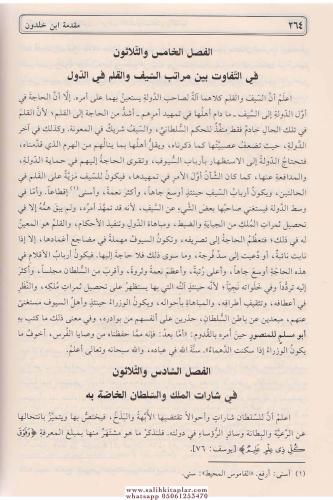 ٣٦٤
مقدمة ابن خلدون
الفصل الخامس والثلاثون
في التفاوت بين مراتب السّيف والقلم في الدّول
اعلم أنّ السّيف والقلم كلاهما آلة لصاحب الدّولة يستعين بهما على أمره. إلّا أنّ الحاجة في
أوّل الدّولة إلى السّيف ـ ما دام أهلها في تمهيد أمرهم ـ أشدّ من الحاجة إلى القلم؛ لأنّ القلم
في تلك الحال خادم فقط منفّذ للحكم السّلطانيّ، والسّيف شريك في المعونة. وكذلك في آخر
الدّولة، حيث تضعف عصبيّتها كما ذكرناه، ويقلّ أهلها بما ينالهم من الهرم الذي قدّمناه،
فتحتاج الدّولة إلى الاستظهار بأرباب السّيوف، وتقوى الحاجة إليهم في حماية الدّولة،
والمدافعة عنها، كما كان الشّأن أوّل الأمر في تمهيدها، فيكون للسّيف مزيّة على القلم في
الحالتين، ويكون أرباب السّيف حينئذ أوسع جاهاً، وأكثر نعمة، وأسنى(١) إقطاعاً. وأمّا في
وسط الدّولة فيستغني صاحبها بعض الشّيء عن السّيف، لأنّه قد تمهّد أمره، ولم يبق همّه إلّا في
تحصيل ثمرات الملك من الجباية والضّبط، ومباهاة الدّول وتنفيذ الأحكام، والقلم هو المعين
له في ذلك؛ فتعظم الحاجة إلى تصريفه، وتكون السّيوف مهملة في مضاجع أغمادها، إلّا إذا
نابت نائبة، أو دُعيت إلى سدّ فُرجة، وما سوى ذلك فلا حاجة إليها. فيكون أرباب الأقلام في
هذه الحاجة أوسع جاهاً، وأعلى رتبة، وأعظم نعمة وثروة، وأقرب من السّلطان مجلساً، وأكثر
إليه تردّداً وفي خلواته نجيّاً؛ لأنّه حينئذ آلته التي بها يستظهر على تحصيل ثمرات مُلكه، والنّظر
في أعطافه، وتثقيف أطرافه، والمباهاة بأحواله، ويكون الوزراء حينئذ وأهل السّيوف مستغنىً
عنهم، مبعدين عن باطن السّلطان، حذرين على أنفسهم من بوادره. وفي معنى ذلك ما كتب به
أبو مسلم للمنصور حينَ أمره بالقدوم: «أمّا بعدُ: فإنّه ممّا حفظناه من وصايا الفُرس، أخوفُ ما
يكونُ الوزراءُ إذا سكنت الدّهماء». سنّة الله في عباده، والله سبحانه وتعالى أعلم.
الفصل السّادس والثّلاثون
في شارات الملك والسّلطان الخاصّة به
اعلم أنّ للسّلطان شارات وأحوالاً تقتضيها الأبّهة والبذخُ، فيختصّ بها ويتميّز بانتحالها
عن الرّعيّة والبطانة وسائر الرّؤساء في دولته. فلنذكر ما هو مشتهر منها بمبلغ المعرفة ﴿وَفَوْقَ
كُلِّ ذِي عِلْمٍ عَلِيمٌ﴾ [يوسف: ٧٦].
(١) أسنى: أرفع. «القاموس المحيط»: سني.
www.salihkitaplar.com
whatsapp 05061253470